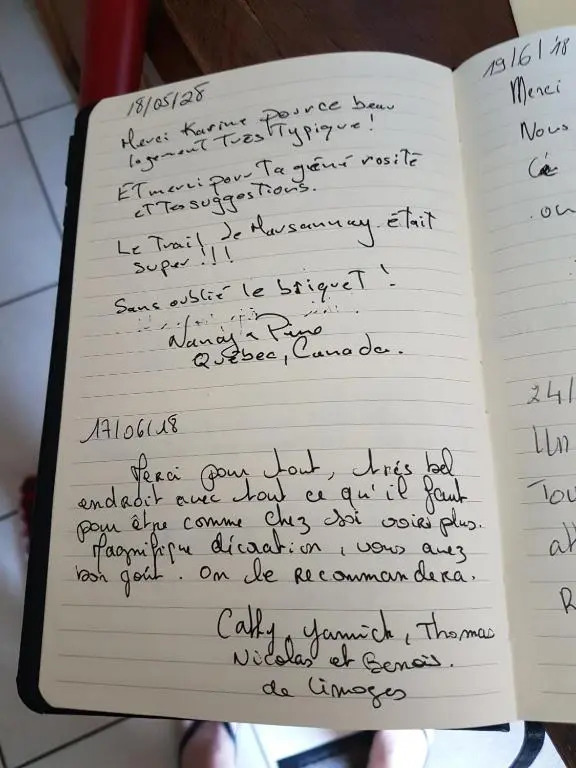 18/05/28
Merci Karine pour ce beau
logement très typique!
Et merci pour ta géné rosité
et tes suggestions.
Le Trail de Marsannay était
super!!!
Sans oublié le briquet!
Nancy & Pino
Québec, Canada.
17/06/18
Merci pour tout, très bel
endroit avec tout ce qu'il faut
pour être comme chez soi voire plus.
Magnifique décoration, vous avez
bon goût. On le recommandera.
Cathy, Yannick, Thomas
Nicolas et Benois.
de Limoges
19/6/18
Merci
Nous
ou
24/
Un
Tou
R